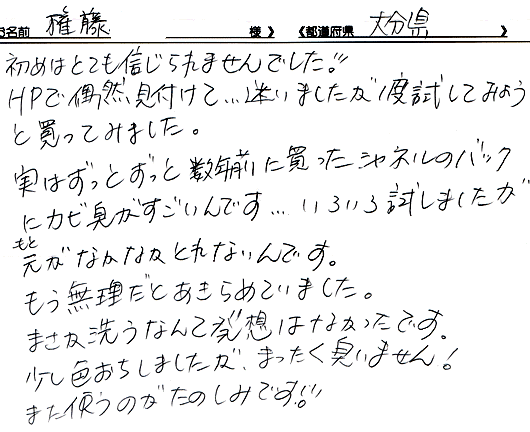 お名前 権藤 様 》 《都道府県 大分県 》
初めはとても信じられませんでした!!
HPで偶然見付けて…迷いましたが1度試してみよう
と買ってみました。
実はずっとずっと数年前に買ったシャネルのバック
にカビ臭がすごいんです…いろいろ試しましたが
元(もと)がなかなかとれないんです。
もう無理だとあきらめていました。
まさか洗うなんて発想はなかったです。
少し色おちしましたが、まったく臭いません!
また使うのがたのしみです!!